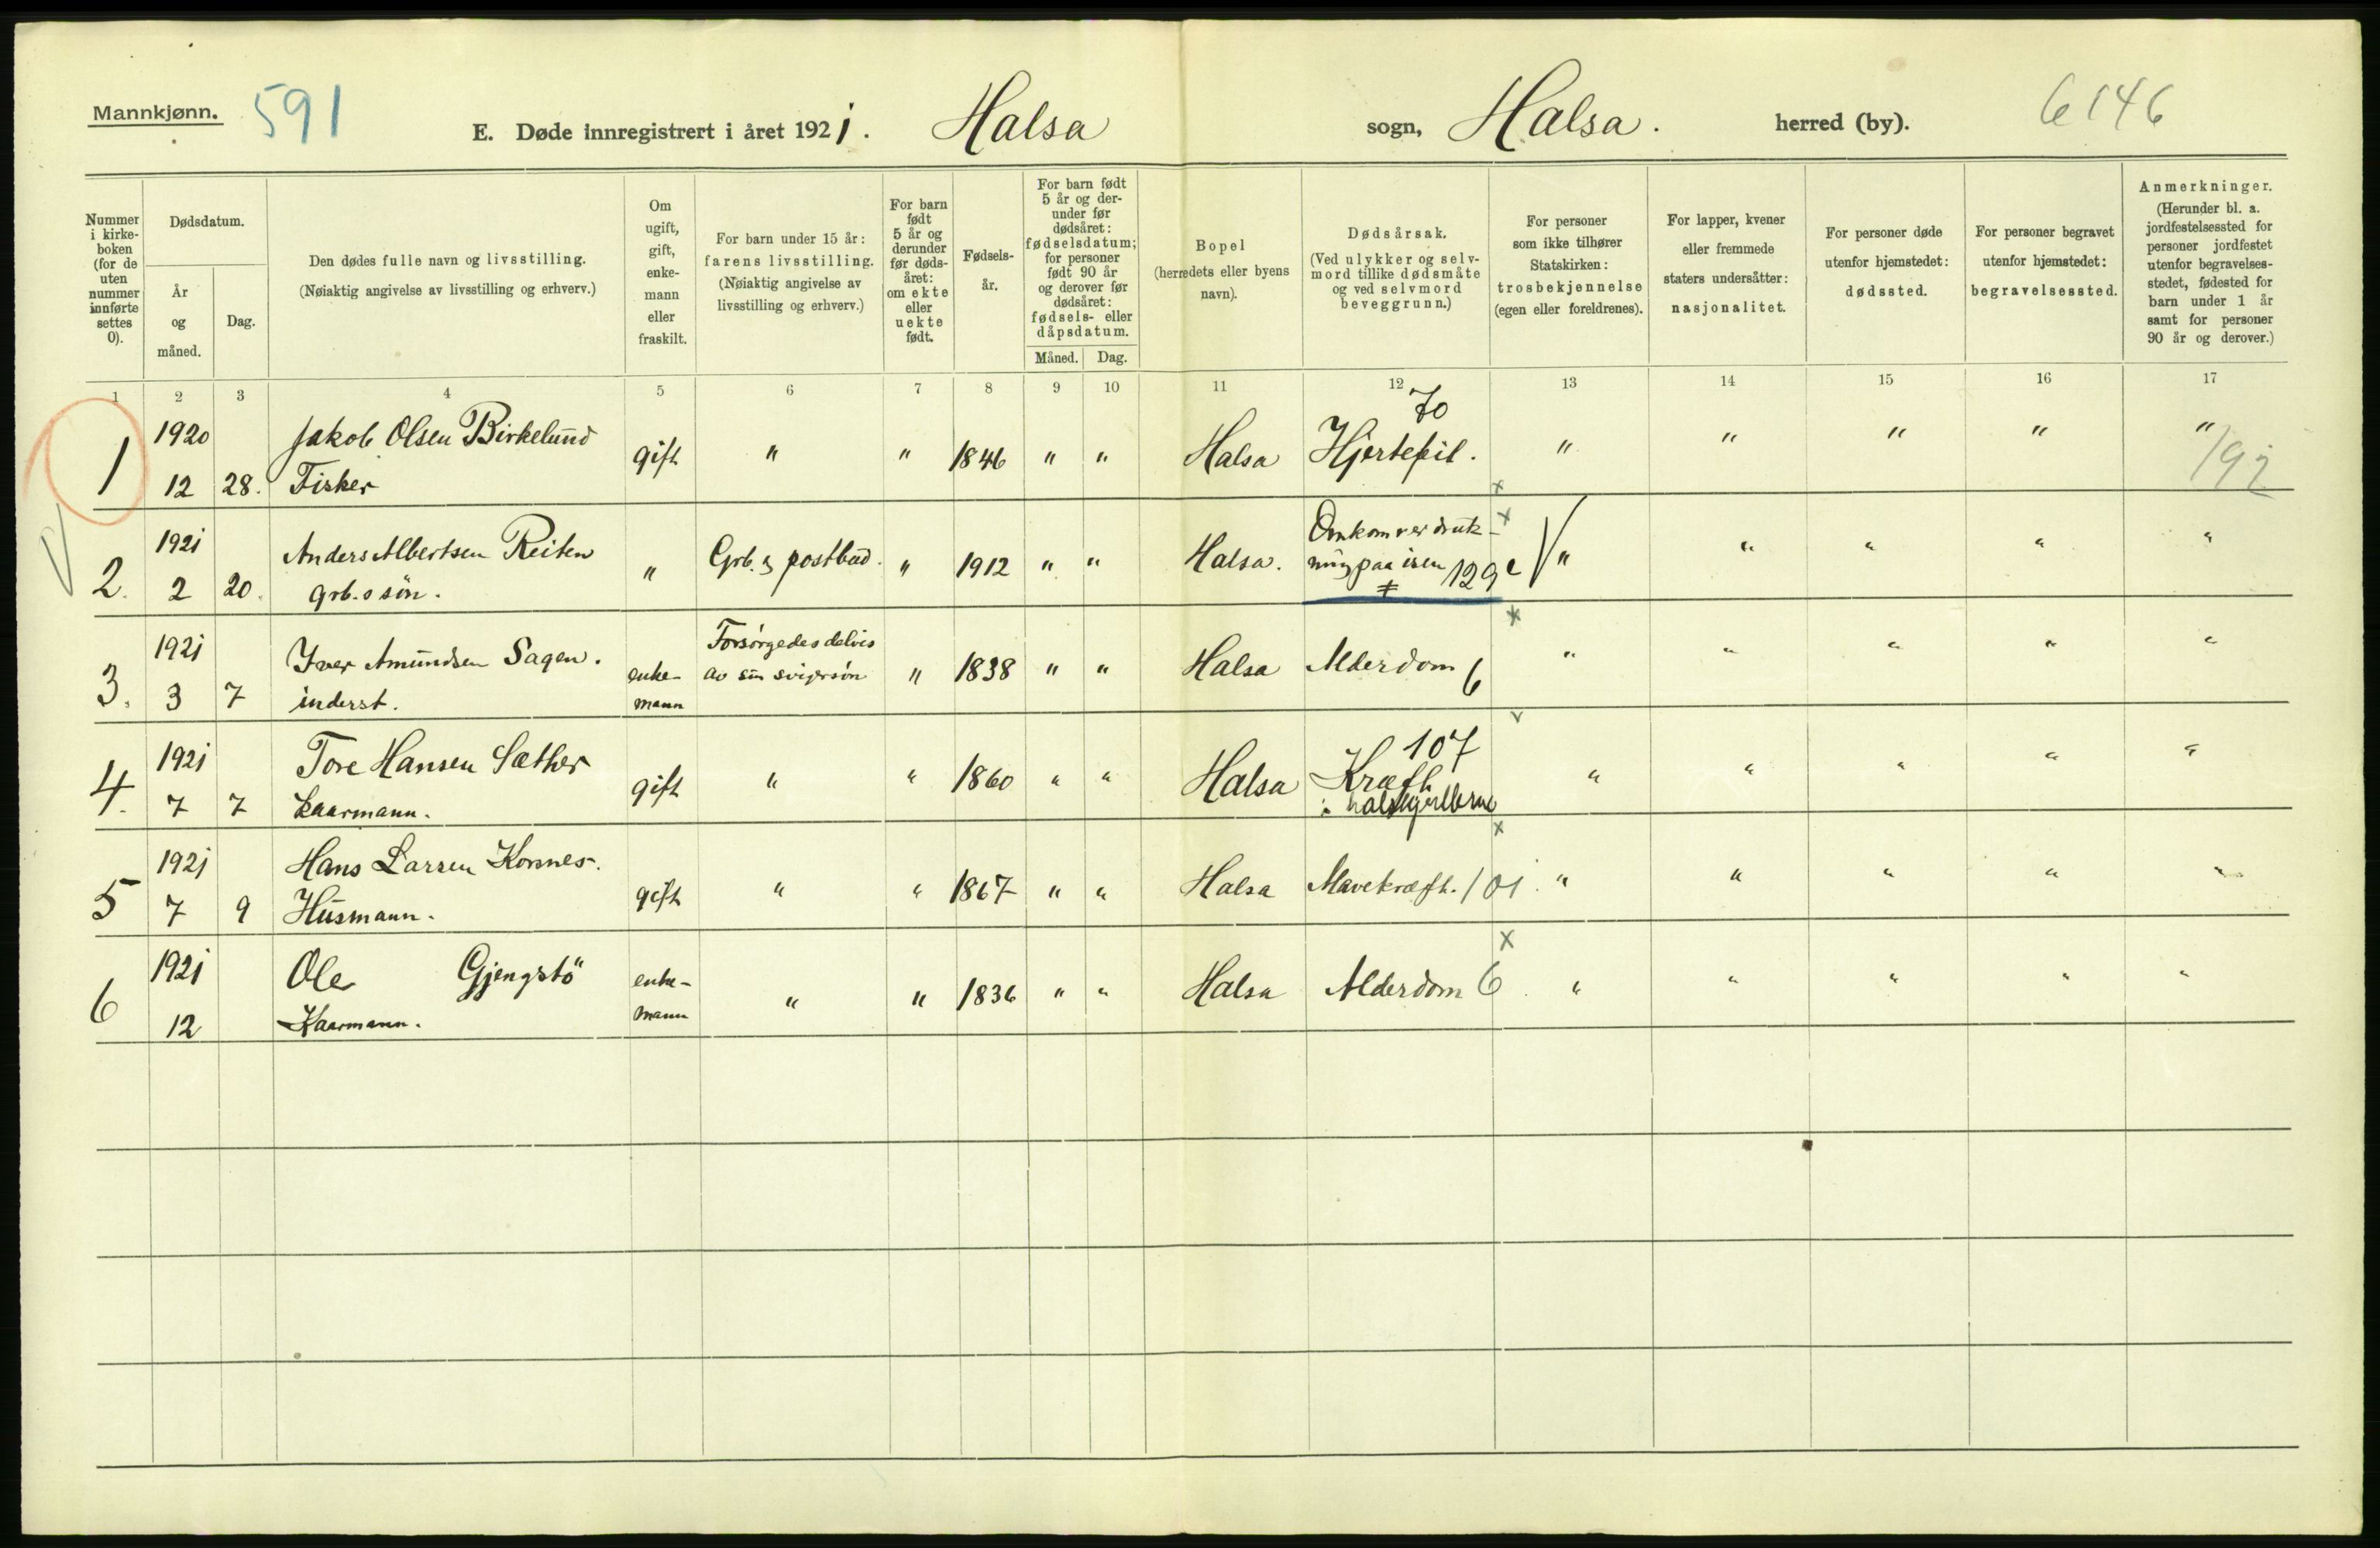 Mannkjønn. 591
E. Døde innregistrert i året 1921. Halsa sogn, Halsa. herred (by). 6146
Nummer
i kirke-
boken
(for de
uten
nummer
innførte
settes
0).
Dødsdatum.
År
og
måned.
Dag.
Den dødes fulle navn og livsstilling.
(Nøiaktig angivelse av livsstilling og erhverv.)
Om
ugift,
gift,
enke-
mann
eller
fraskilt.
For barn under 15 år:
farens livsstilling.
(Nøiaktig angivelse av
livsstilling og erhverv.)
For barn
født
5 år og
derunder
før døds-
året:
om ekte
eller
uekte
født.
Fødsels-
år.
For barn født
5 år og der-
under før
dødsåret:
fødselsdatum;
for personer
født 90 år
og derover før
dødsåret:
fødsels- eller
dåpsdatum.
Måned. Dag.
Bopel
(herredets eller byens
navn).
Dødsårsak.
(Ved ulykker og selv-
mord tillike dødsmåte
og ved selvmord
beveggrunn.)
For personer
som ikke tilhører
Statskirken:
trosbekjennelse
(egen eller foreldrenes).
For lapper, kvener
eller fremmede
staters undersåtter:
nasjonalitet.
For personer døde
utenfor hjemstedet:
dødssted.
For personer begravet
utenfor hjemstedet:
begravelsessted.
Anmerkninger.
(Herunder bl. a.
jordfestelsessted for
personer jordfestet
utenfor begravelses-
stedet, fødested for
barn under 1 år
samt for personer
90 år og derover.)
1 2 3 4 5 6 7 8 9 10 11 12 13 14 15 16 17
70
1920 Jakob Olsen Birkelund
1 12 28. Fisker gift " " 1846 " " Halsa Hjertefeil. " " " " "
192
x
1921 Anders Albertsen Reiten Omkom ved druk- x
2. 2 20. grb.s søn. " Grb. & postbud. " 1912 " " Halsa. ning paa isen 129 " " " " "
x
1921 Iver Amundsen Sagen. Forsørgedes delvis
3. 3 7 inderst. enke- av sin svigersøn " 1838 " " Halsa Alderdom 6 " " " " "
mann
v
1921 Tore Hansen Sæther 107
4. 7 7 Kaarmann. gift " " 1860 " " Halsa Kræft " " " " "
i halskjertlerne
x
1921 Hans Larsen Konnes.
5 7 9 Husmann. gift " " 1867 " " Halsa Mavekræft. 101. " " " " "
x
1921 Ole Gjengstö enke-
6 12 Kaarmann. mann " " 1836 " " Halsa Alderdom 6 " " " " "